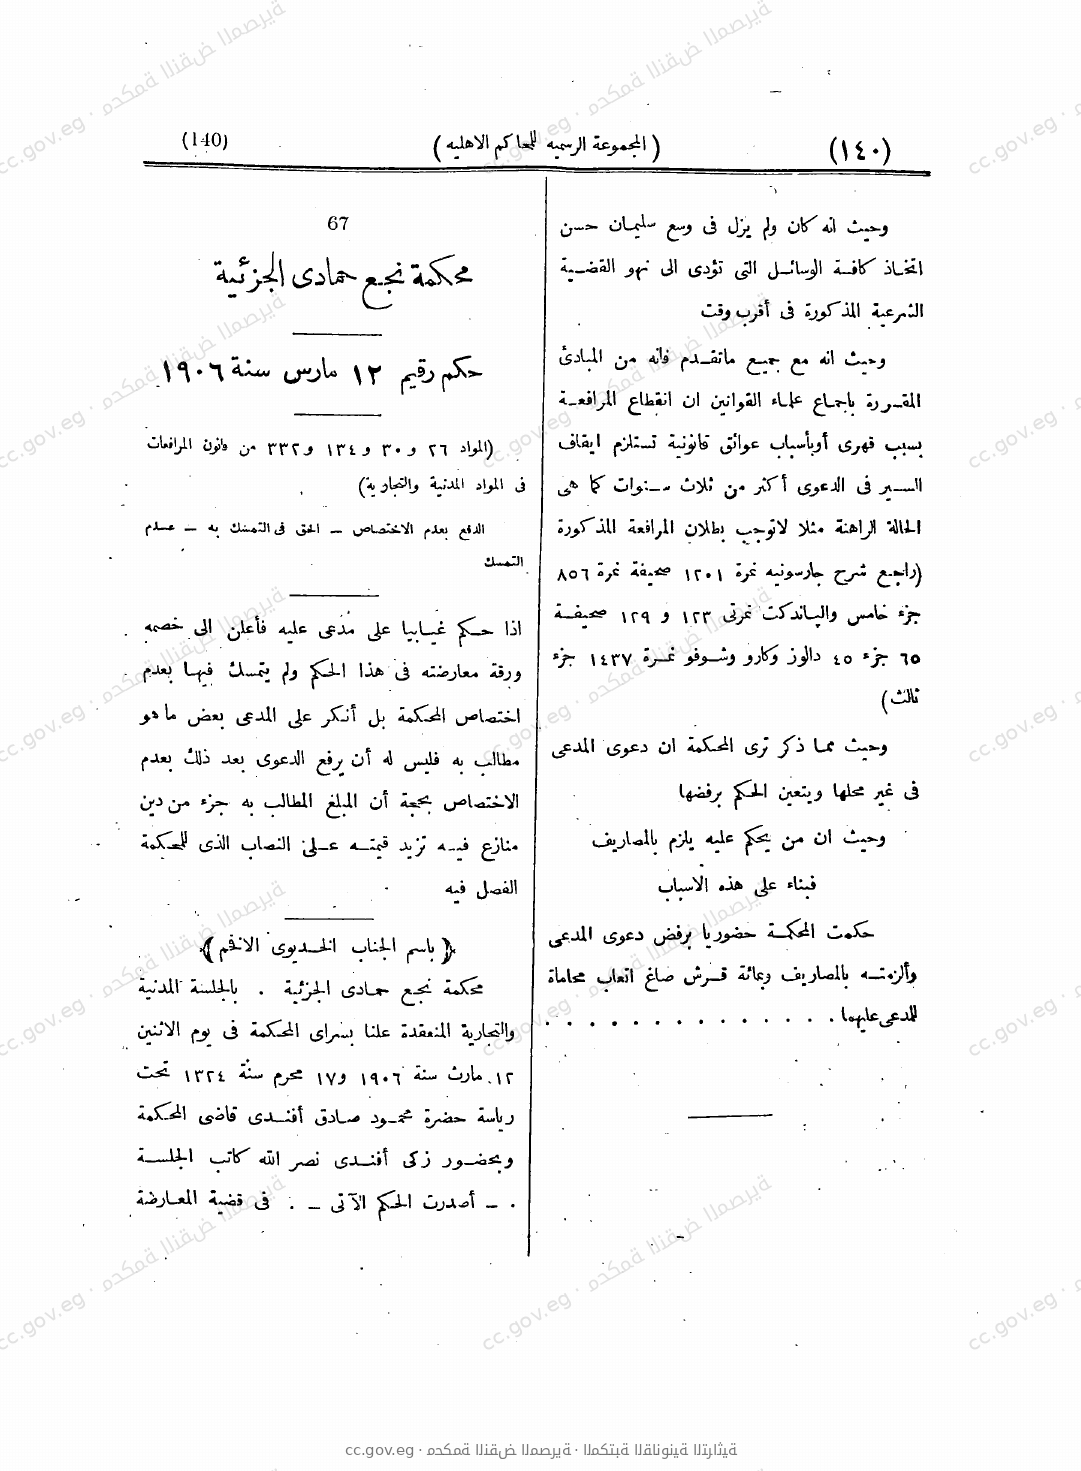 (١٤٠)
(المجموعة الرسميه للمحاكم الاهليه)
(140)
وحيث انه كان ولم يزل فى وسع سليمان حسن
اتخاذ كافة الوسائل التى تؤدى الى نهو القضية
الشرعية المذكورة فى أقرب وقت
وحيث انه مع جميع ماتقدم فانه من المبادئ
المقررة باجماع علماء القوانين ان انقطاع المرافعة
بسبب قهرى أوبأسباب عوائق قانونية تستلزم ايقاف
السير فى الدعوى أكثر من ثلاث سنوات كما هى
الحالة الراهنة مثلا لاتوجب بطلان المرافعة المذكورة
(راجع شرح جارسونيه نمرة ١٢٠١ صحيفة نمرة ٨٥٦
جزء خامس والپاندكت نمرتى ١٢٣ و ١٢٩ صحيفة
٦٥ جزء ٤٥ دالوز وكارو وشوفو نمرة ١٤٣٧ جزء
ثالث)
وحيث مما ذكر ترى المحكمة ان دعوى المدعى
فى غير محلها ويتعين الحكم برفضها
وحيث ان من يحكم عليه يلزم بالمصاريف
فبناء على هذه الاسباب
حكمت المحكمة حضوريا برفض دعوى المدعى
وألزمته بالمصاريف وبمائة قرش صاغ اتعاب محاماة
للمدعى عليهما . . . . . . . . . . . . . .
67
محكمة نجع حمادى الجزئية
حكم رقيم ١٢ مارس سنة ١٩٠٦
(المواد ٢٦ و ٣٠ و ١٣٤ و ٣٣٢ من قانون المرافعات
فى المواد المدنية والتجارية)
الدفع بعدم الاختصاص – الحق فى التمسك به – عدم
التمسك
اذا حكم غيابيا على مدعى عليه فأعلن الى خصمه
ورقة معارضته فى هذا الحكم ولم يتمسك فيها بعدم
اختصاص المحكمة بل أنكر على المدعى بعض ما هو
مطالب به فليس له أن يرفع الدعوى بعد ذلك بعدم
الاختصاص بحجة أن المبلغ المطالب به جزء من دين
منازع فيه تزيد قيمته على النصاب الذى للمحكمة
الفصل فيه
﴿ باسم الجناب الخديوى الافخم ﴾
محكمة نجع حمادى الجزئية . بالجلسة المدنية
والتجارية المنعقدة علنا بسراى المحكمة فى يوم الاثنين
١٢ مارث سنة ١٩٠٦ و١٧ محرم سنة ١٣٢٤ تحت
رياسة حضرة محمود صادق أفندى قاضى المحكمة
وبحضور زكى أفندى نصر الله كاتب الجلسة
. – أصدرت الحكم الآتى – . فى قضية المعارضة
cc.gov.eg · محكمة النقض المصرية · المكتبة القانونية التراثية